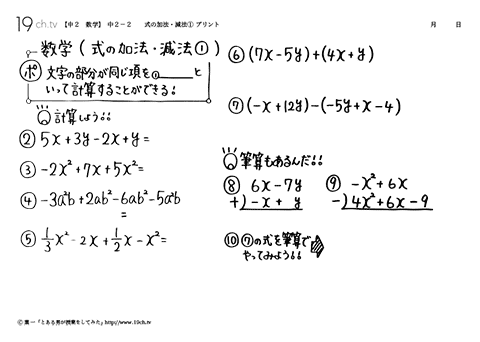 19ch.tv 【中2 数学】 中2-2 式の加法・減法① プリント 月 日
数学(式の加法・減法①)
ポ 文字の部分が同じ項を①______と
いって計算することができる!
計算しよう!!
② 5x+3y-2x+y=
③ -2x²+7x+5x²=
④ -3a²b+2ab²-6ab²-5a²b
=
⑤ 1/3x²-2x+1/2x-x²=
⑥ (7x-5y)+(4x+y)
⑦ (-x+12y)-(-5y+x-4)
筆算もあるんだ!!
⑧ 6x-7y
+)-x+y
⑨ -x²+6x
-)4x²+6x-9
⑩ ⑦の式を筆算で
やってみよう!!
Ⓒ 葉一「とある男が授業をしてみた」http://www.19ch.tv